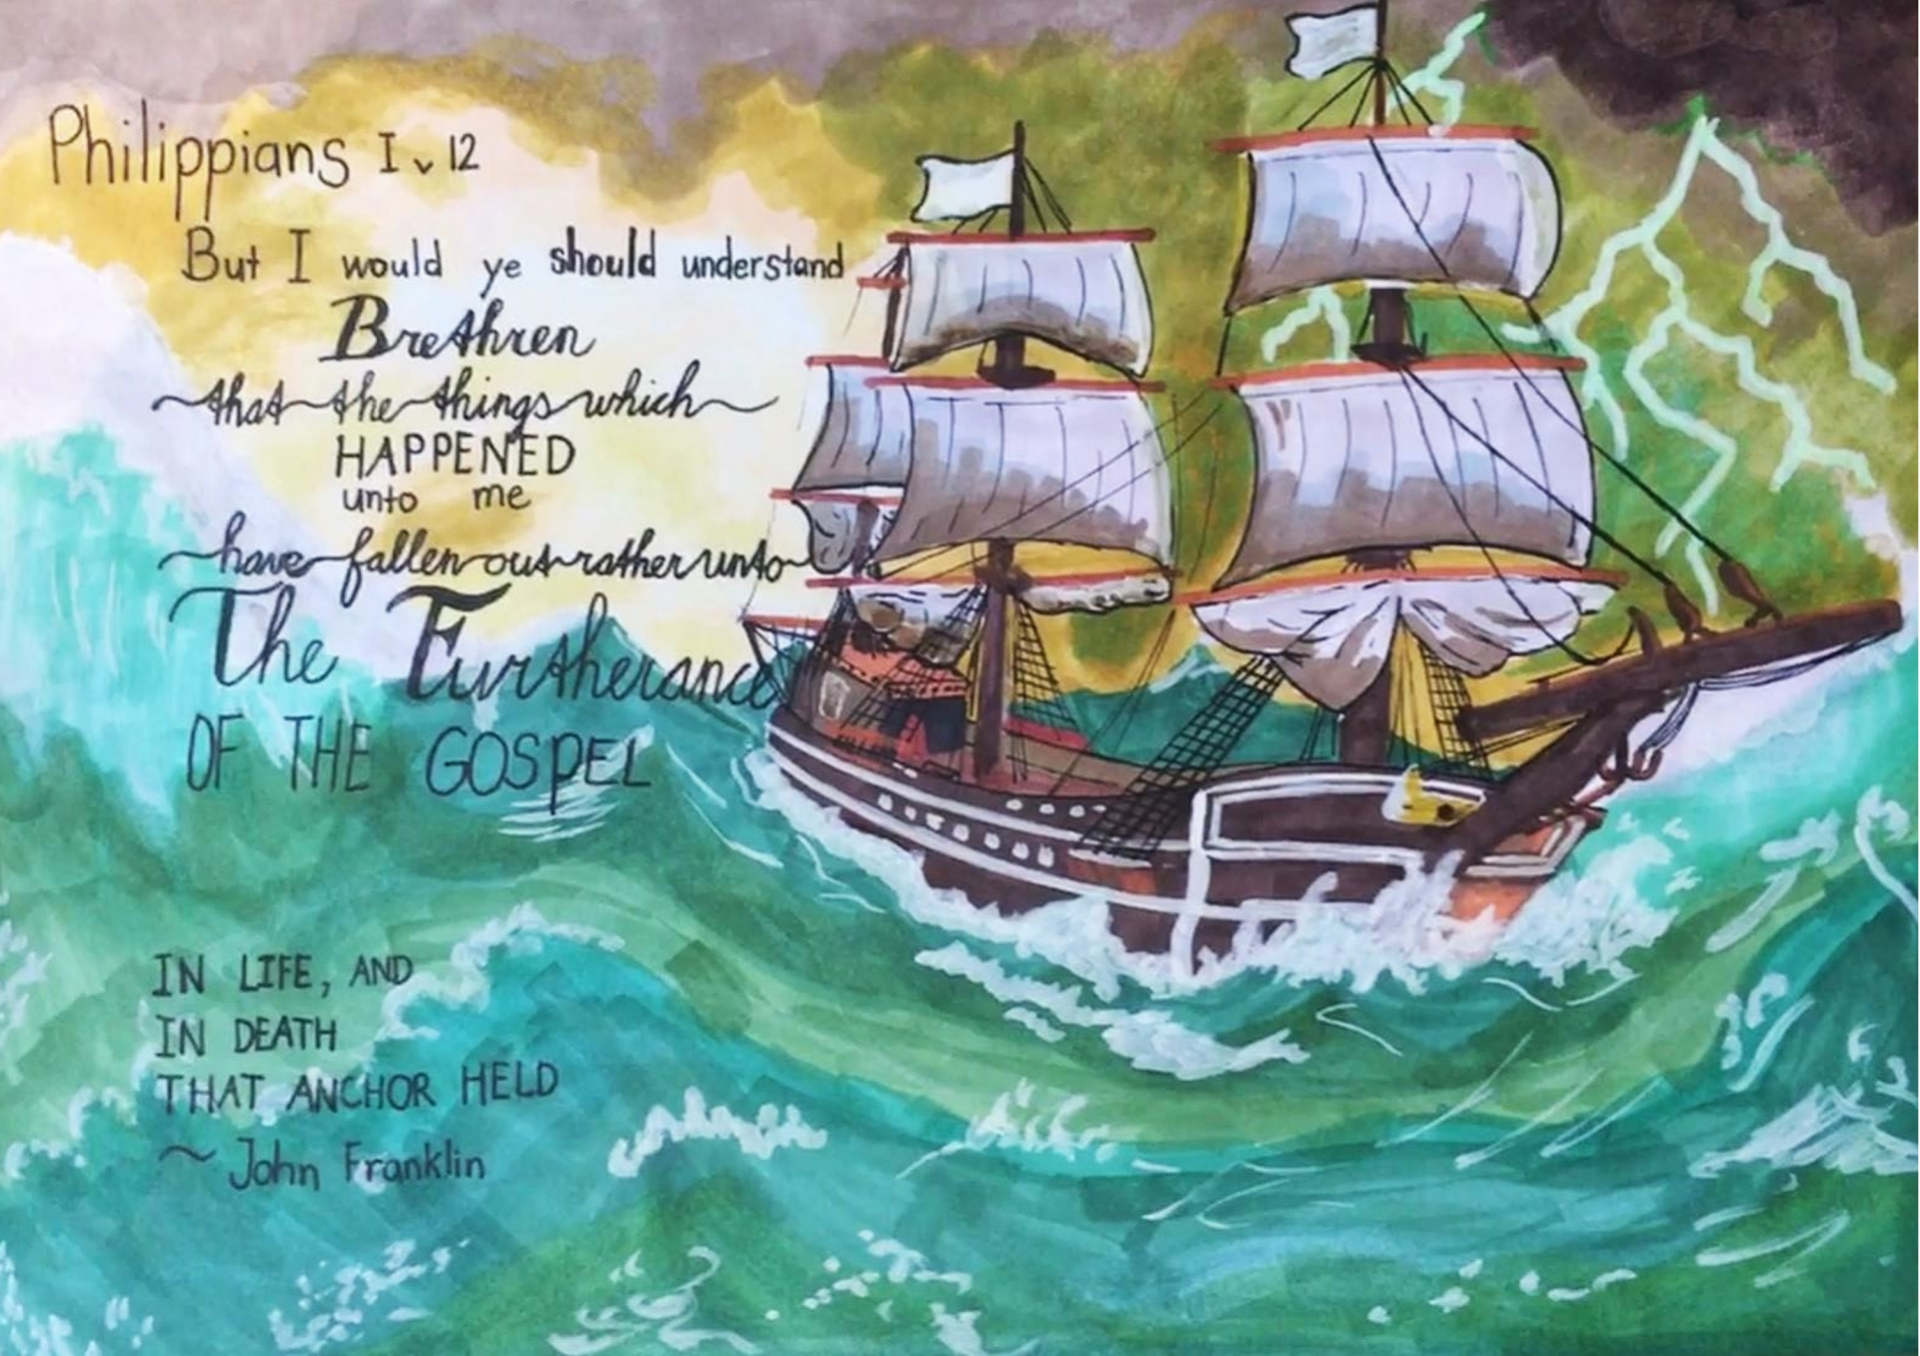 Philippians I v 12
But I would ye should understand
Brethren
that the things which
HAPPENED
unto me
have fallen out rather unto
The Furtherance
OF THE GOSPEL
IN LIFE, AND
IN DEATH
THAT ANCHOR HELD
~ John Franklin